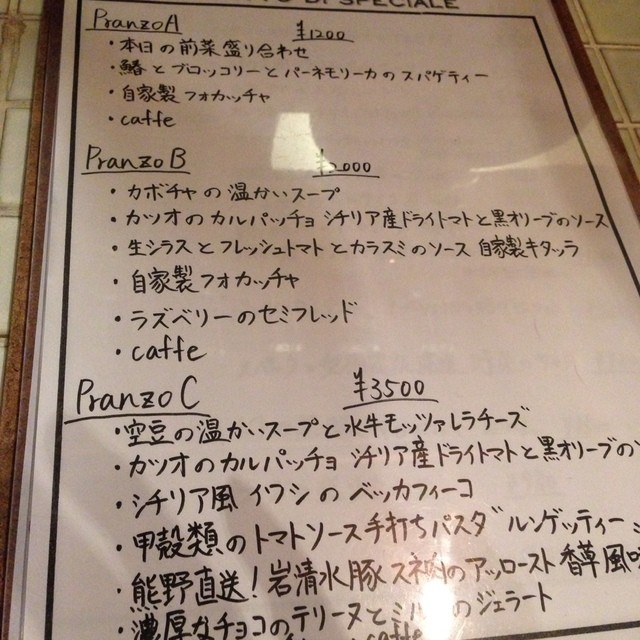 DI SPECIALE
Pranzo A ¥1200
・本日の前菜盛り合わせ
・鰆とブロッコリーとパーネモリーカのスパゲティー
・自家製フォカッチャ
・caffe
Pranzo B 000
・カボチャの温かいスープ
・カツオのカルパッチョ シチリア産ドライトマトと黒オリーブのソース
・生シラスとフレッシュトマトとカラスミのソース 自家製キタッラ
・自家製フォカッチャ
・ラズベリーのセミフレッド
・caffe
Pranzo C ¥3500
・空豆の温かいスープと水牛モッツァレラチーズ
・カツオのカルパッチョ シチリア産ドライトマトと黒オリーブの
・シチリア風 イワシのベッカフィーコ
・甲殻類のトマトソース手打ちパスタ"ルンゲッティー
・熊野直送!岩清水豚スネ肉のアッロースト 香草風味
・濃厚なチョコのテリーヌと のジェラート
caffe